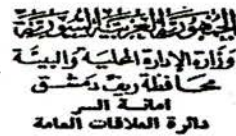 الجمهورية العربية السورية
وزارة الإدارة المحلية والبيئة
محافظة ريف دمشق
امانة السر
دائرة العلاقات العامة